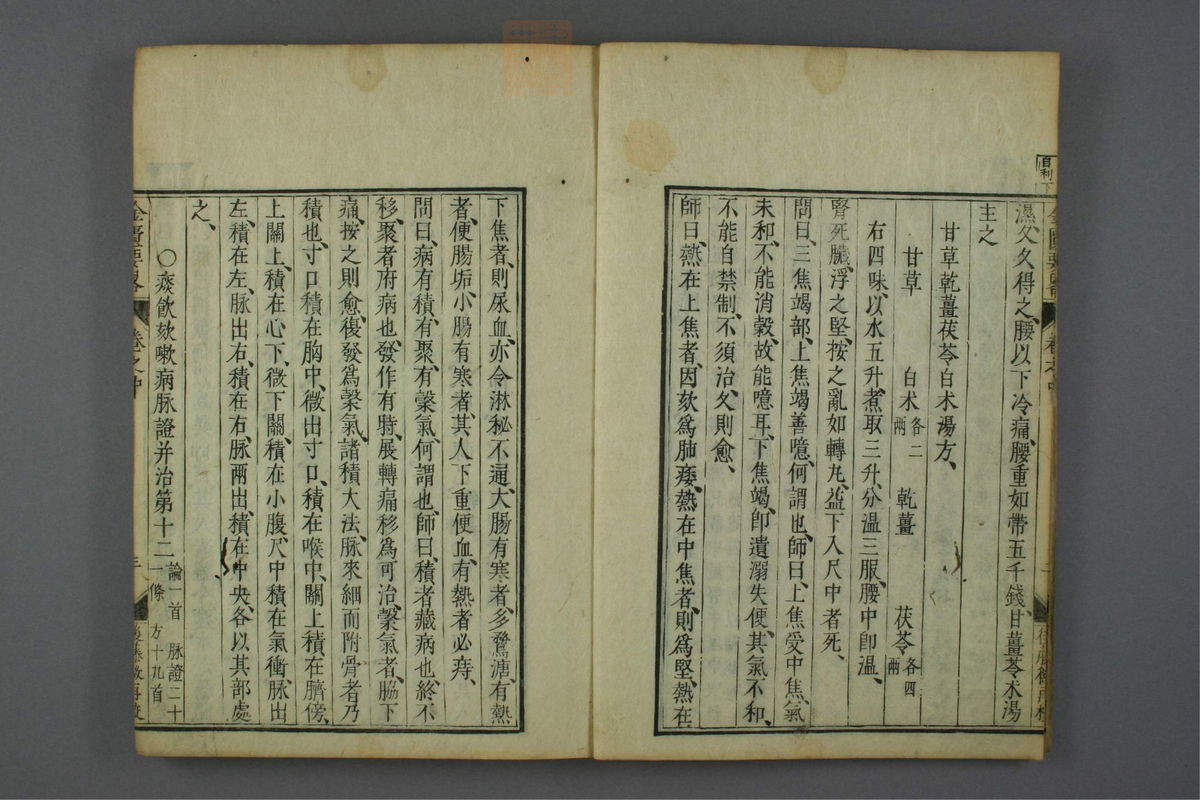 濕久久得之、腰以下冷痛、腰重如帶五千錢、甘薑苓朮湯
主之
甘草乾薑茯苓白朮湯方、
甘草 白朮各二兩 乾薑 茯苓各四兩
右四味、以水五升、煮取三升、分溫三服、腰中卽溫、
腎死臟、浮之堅、按之亂如轉丸、益下入尺中者死、
問曰、三焦竭部、上焦竭善噫、何謂也、師曰、上焦受中焦、氣
未和、不能消穀、故能噫耳、下焦竭、卽遺溺失便、其氣不和、
不能自禁制、不須治、久則愈、
師曰、熱在上焦者、因欬爲肺痿、熱在中焦者、則爲堅、熱在
下焦者、則尿血、亦令淋秘不通、大腸有寒者、多鶩溏、有熱
者、便腸垢、小腸有寒者、其人下重便血、有熱者必痔、
問曰、病有積、有聚、有䅽氣、何謂也、師曰、積者藏病也、終不
移、聚者府病也、發作有時、展轉痛移爲可治、䅽氣者、脇下
痛、按之則愈、復發爲䅽氣、諸積大法、脉來細而附骨者、乃
積也、寸口積在胸中、微出寸口、積在喉中、關上積、在臍傍、
上關上、積在心下、微下關、積在小腹、尺中積在氣衝、脉出
左、積在左、脉出右、積在右、脉兩出、積在中央、各以其部處
之、
○痰飮欬嗽病脉證并治第十二 論一首 脉證二十一條 方十九首
金匱要略 卷之中